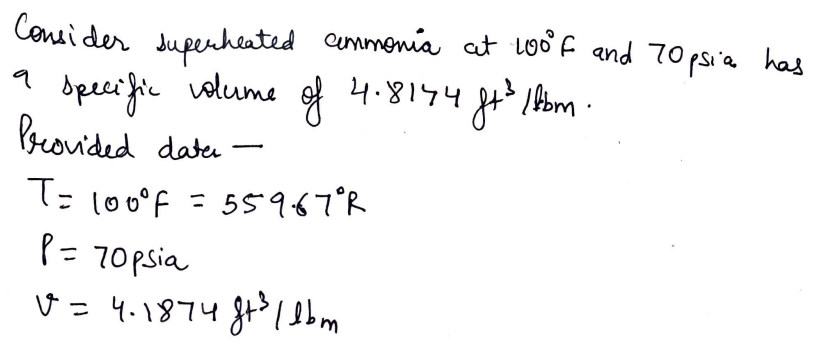 Consider superheated ammonia at 100°F and 70 psia has
a specific volume of 4.8174 ft³/lbm.
Provided data —
T = 100°F = 559.67°R
P = 70 psia
v = 4.1874 ft³/lbm